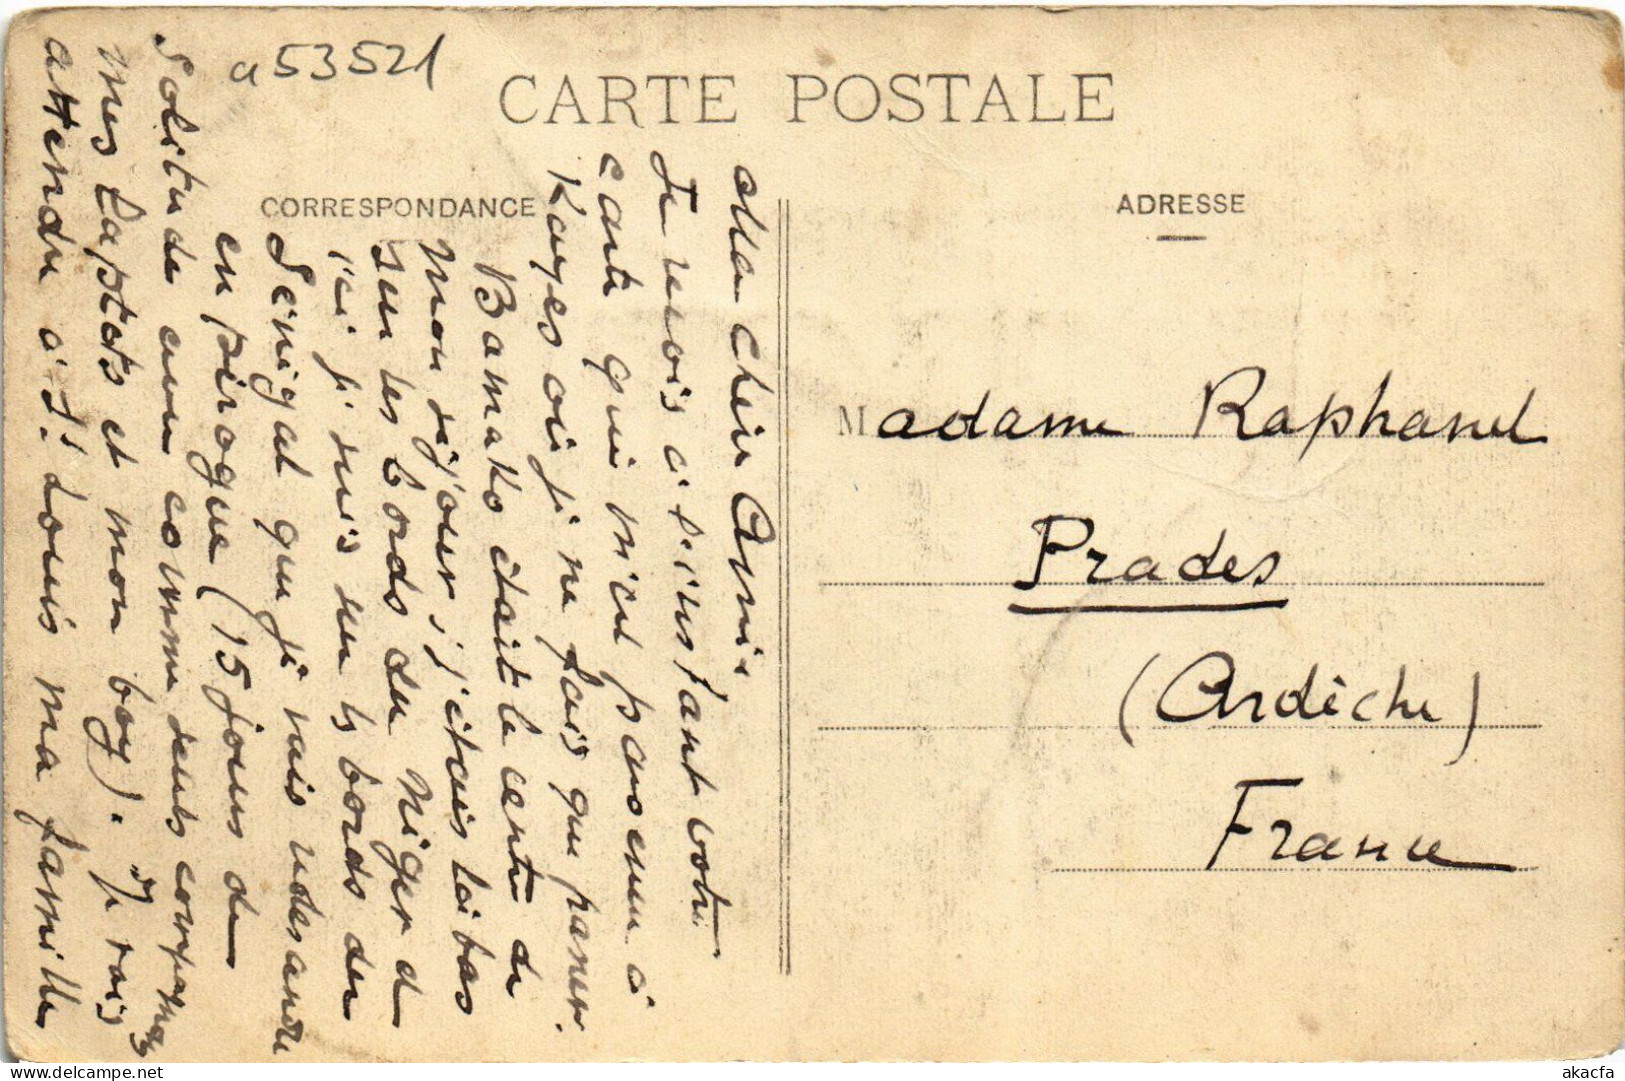 a 53521
CARTE POSTALE
CORRESPONDANCE
ADRESSE
Ma chère Amie
Je reçois à l'instant votre
carte qui m'est parvenue à
Kayes où je ne fais que passer.
Bamako était le centre de
mon séjour, j'étais là bas
sur les bords du Niger et
ici je suis sur les bords du
Sénégal que je vais redescendre
en pirogue (15 jours de
Solitude avec comme seuls compagnons
mes laptots et mon boy). Je vais
attendre à St Louis ma famille
Madame Raphanel
Prades
(Ardèche)
France
delcampe.net
akacfa